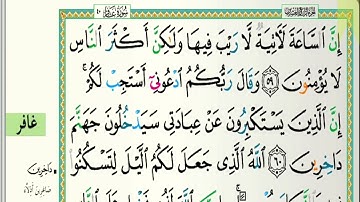 سورة غافر ٤٠
إِنَّ ٱلسَّاعَةَ لَآتِيَةٌ لَّا رَيْبَ فِيهَا وَلَٰكِنَّ أَكْثَرَ ٱلنَّاسِ
لَا يُؤْمِنُونَ ٥٩ وَقَالَ رَبُّكُمُ ٱدْعُونِىٓ أَسْتَجِبْ لَكُمْ ۚ
إِنَّ ٱلَّذِينَ يَسْتَكْبِرُونَ عَنْ عِبَادَتِى سَيَدْخُلُونَ جَهَنَّمَ
غافر
دَاخِرِينَ ٦٠ ٱللَّهُ ٱلَّذِى جَعَلَ لَكُمُ ٱلَّيْلَ لِتَسْكُنُوا۟
دَاخِرِين